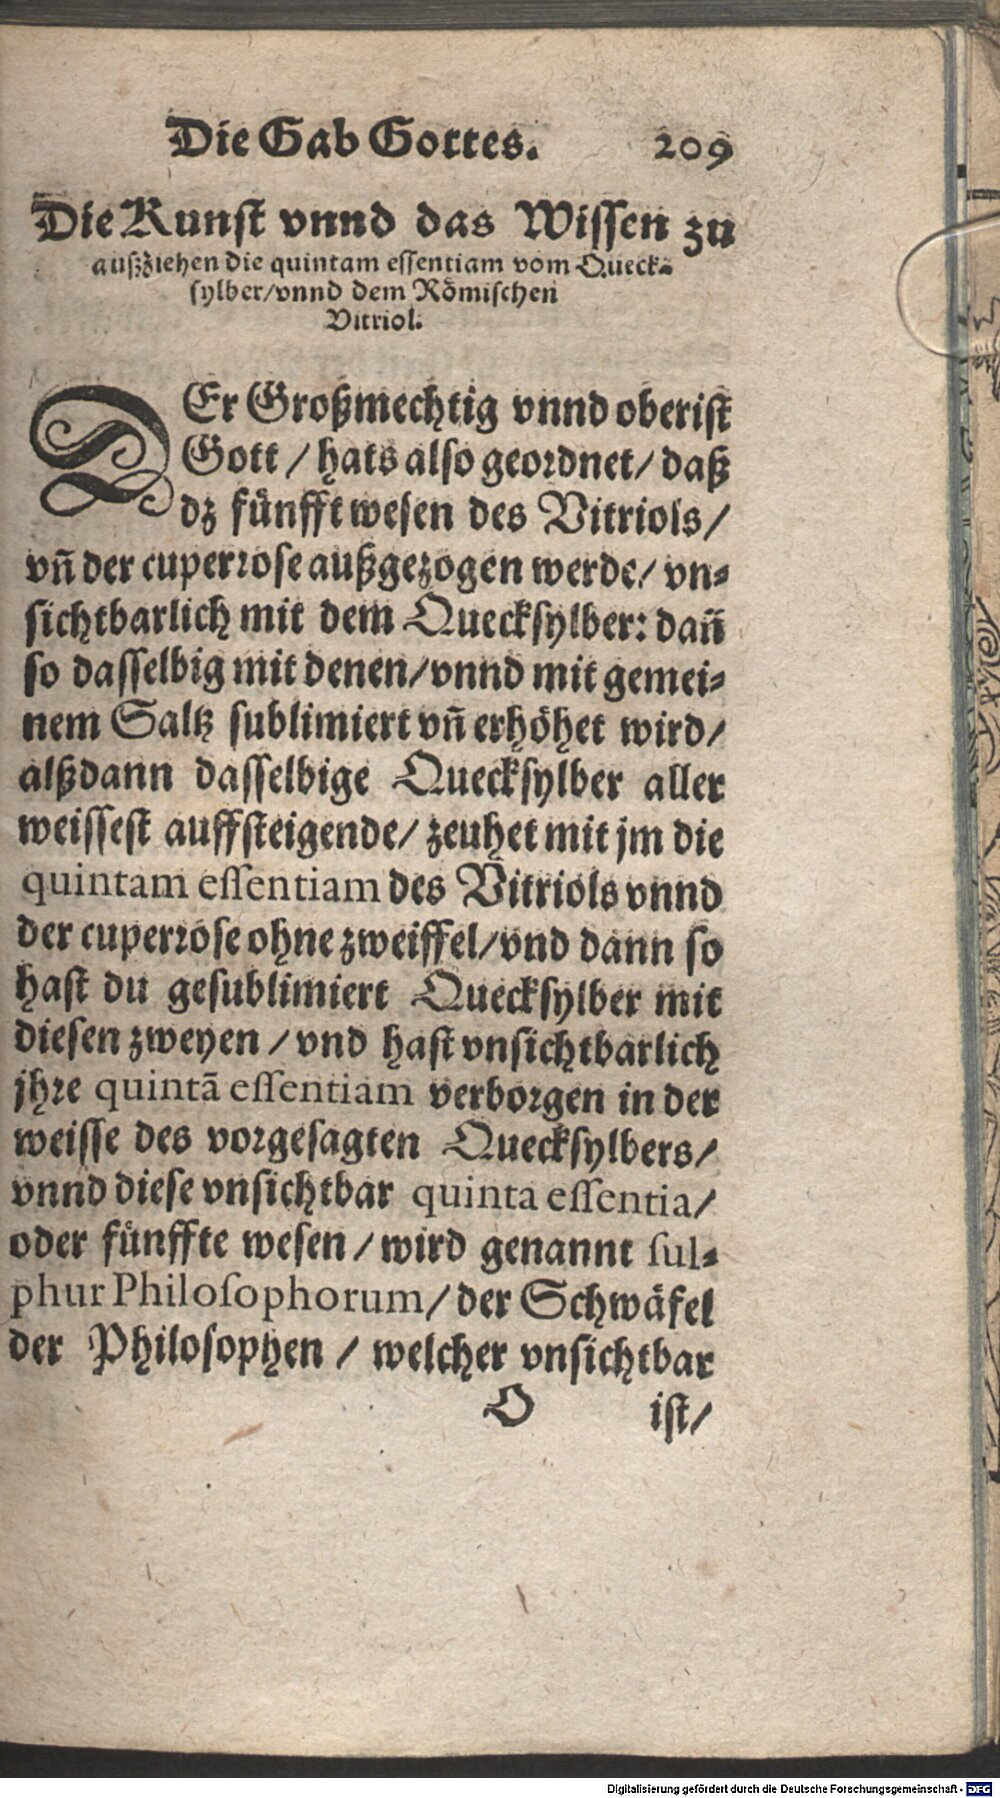 Die Gab Gottes. 209
Die Kunst vnnd das Wissen zu
außziehen die quintam essentiam vom Queck-
sylber/vnnd dem Römischen
Vitriol.
DEr Großmechtig vnnd oberist
Gott / hats also geordnet/ daß
dz fünfft wesen des Vitriols/
vñ der cuperrose außgezogen werde/ vn-
sichtbarlich mit dem Quecksylber: dañ
so dasselbig mit denen/vnnd mit gemei-
nem Saltz sublimiert vñ erhöhet wird/
alßdann dasselbige Quecksylber aller
weissest auffsteigende/ zeuhet mit jm die
quintam essentiam des Vitriols vnnd
der cuperrose ohne zweiffel/vnd dann so
hast du gesublimiert Quecksylber mit
diesen zweyen / vnd hast vnsichtbarlich
jhre quintã essentiam verborgen in der
weisse des vorgesagten Quecksylbers/
vnnd diese vnsichtbar quinta essentia/
oder fünffte wesen / wird genannt sul-
phur Philosophorum/ der Schwäfel
der Philosophen / welcher vnsichtbar
O ist/
Digitalisierung gefördert durch die Deutsche Forschungsgemeinschaft - DFG